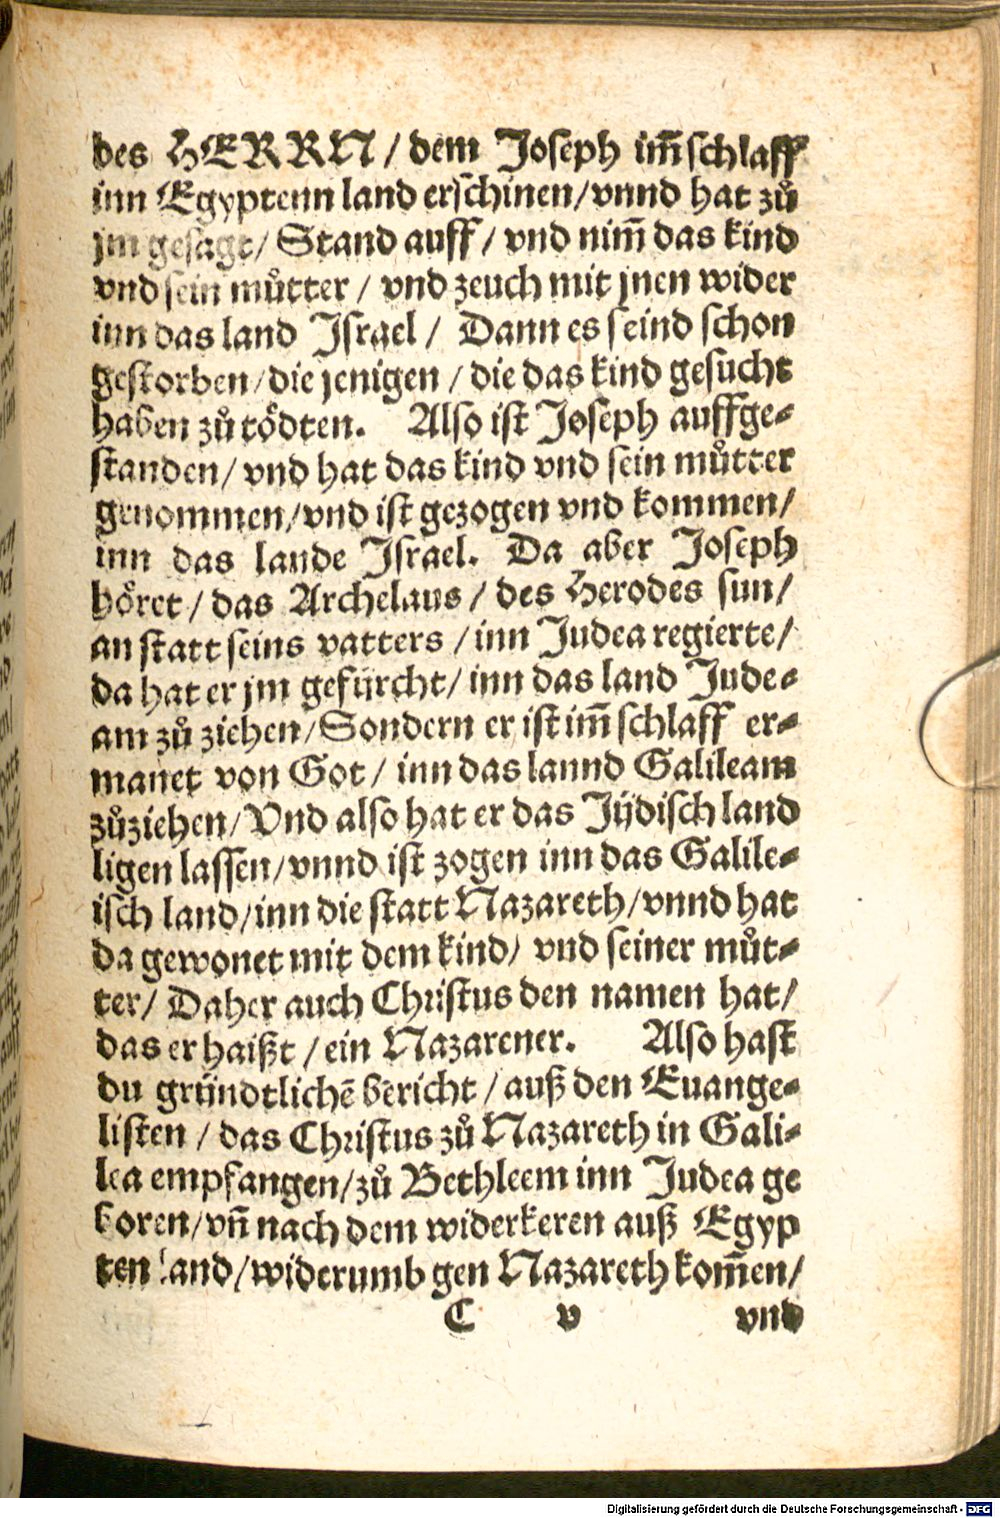 des HERRN / dem Joseph im̃ schlaff
inn Egyptenn land erschinen / vnnd hat zů
jm gesagt / Stand auff / vnd nim̃ das kind
vnd sein můtter / vnd zeuch mit jnen wider
inn das land Israel / Dann es seind schon
gestorben / die jenigen / die das kind gesucht
haben zů tödten. Also ist Joseph auffge-
standen / vnd hat das kind vnd sein můtter
genommen / vnd ist gezogen vnd kommen /
inn das lande Israel. Da aber Joseph
höret / das Archelaus / des Herodes sun /
an statt seins vatters / inn Judea regierte /
da hat er jm gefürcht / inn das land Jude-
am zů ziehen / Sondern er ist im̃ schlaff er-
manet von Got / inn das lannd Galileam
zůziehen / Vnd also hat er das Jüdisch land
ligen lassen / vnnd ist zogen inn das Galile-
isch land / inn die statt Nazareth / vnnd hat
da gewonet mit dem kind / vnd seiner můt-
ter / Daher auch Christus den namen hat /
das er haißt / ein Nazarener. Also hast
du gründtlichẽ bericht / auß den Euange-
listen / das Christus zů Nazareth in Gali-
lea empfangen / zů Bethleem inn Judea ge
boren / vñ nach dem widerkeren auß Egyp
ten land / widerumb gen Nazareth kom̃en /
C v vnd
Digitalisierung gefördert durch die Deutsche Forschungsgemeinschaft - DFG